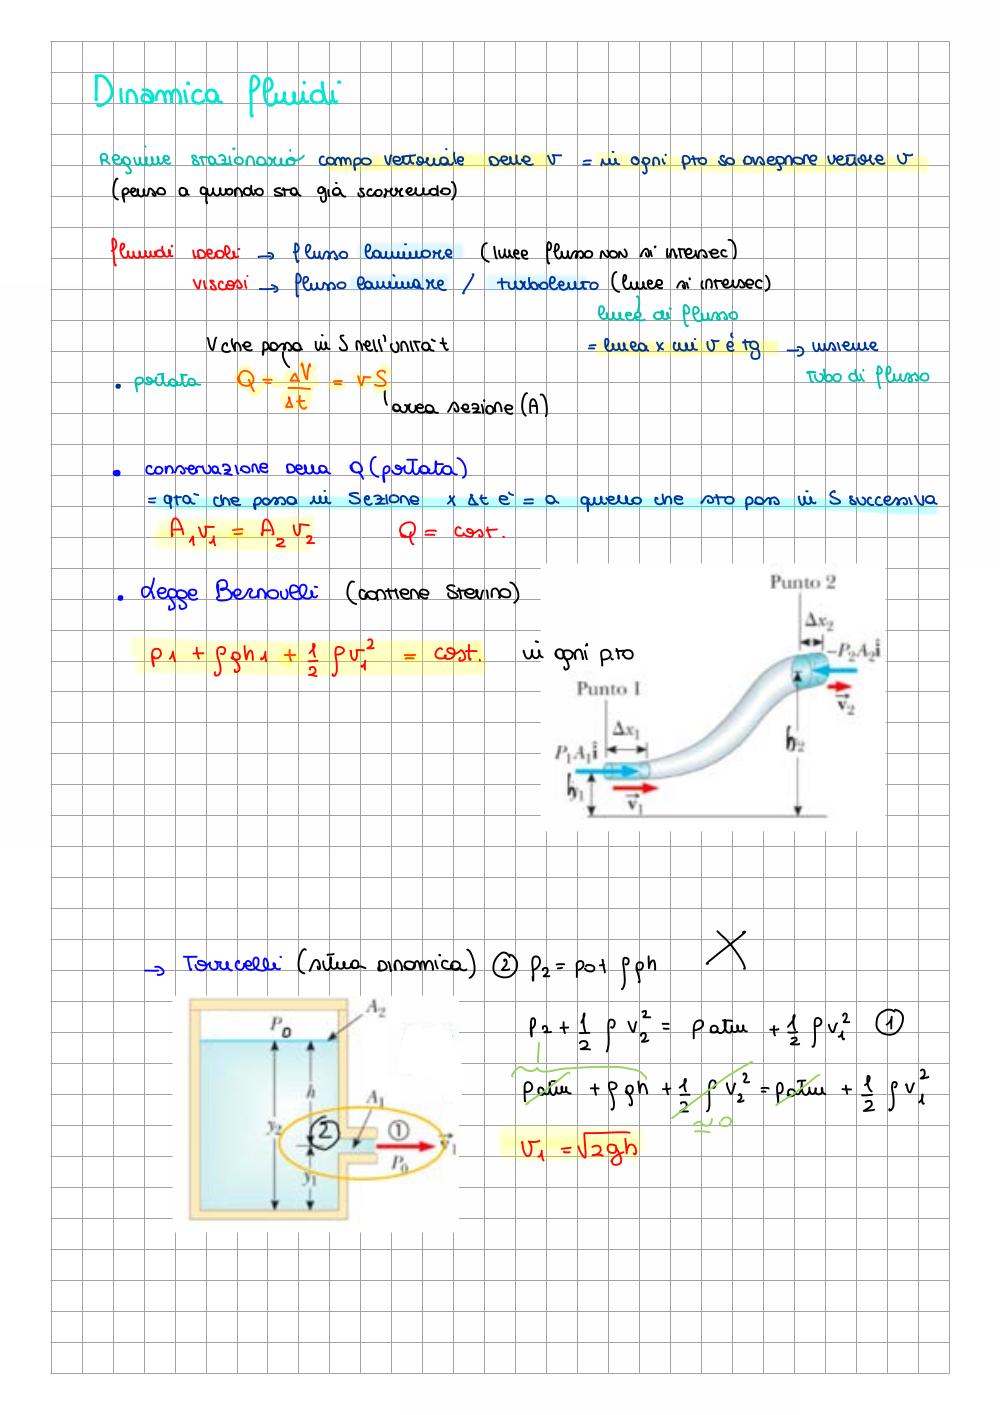 Dinamica fluidi
Regime stazionario campo vettoriale delle v = in ogni pto so assegnare vettore v
(penso a quando sta già scorrendo)
fluidi ideali → flusso laminare (linee flusso non si intersec)
viscosi → flusso laminare / turbolento (linee si intersec)
linee di flusso
= linea x cui v è tg → insieme
tubo di flusso
V che passa in S nell'unità t
• portata Q = ΔV/Δt = v S
area sezione (A)
• conservazione della Q (portata)
= qtà che passa in Sezione x Δt è = a quello che sto pass in S successiva
A₁v₁ = A₂v₂ Q = cost.
• Legge Bernoulli (contiene Stevino)
p₁ + ρgh₁ + ½ ρv₁² = cost. in ogni pto
Punto 2
Δx₂
-P₂A₂î
v₂
h₂
Punto 1
Δx₁
P₁A₁î
h₁
v₁
→ Torricelli (situa dinamica) ② p₂ = p₀ + ρgh
p₂ + ½ ρ v₂² = patm + ½ ρv₁² ①
patm + ρgh + ½ ρ v₂² = patm + ½ ρ v₁²
≃ 0
v₁ = √2gh
P₀
A₂
h
A₁
y₂
②
①
v₁
P₀
y₁